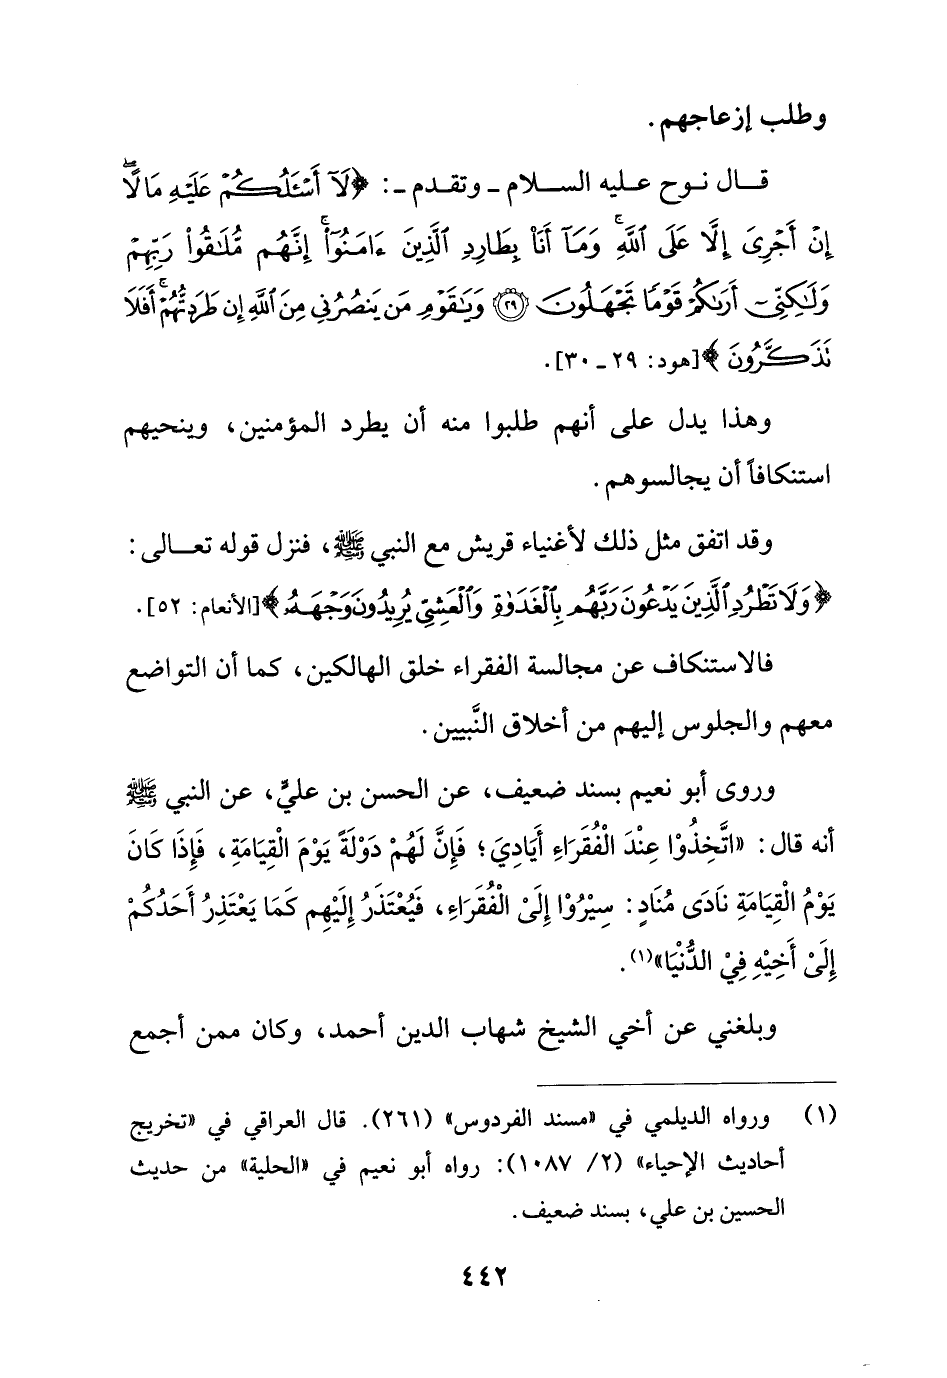 وطلب إزعاجهم.
قـــال نـوح عـليه الســلام ـ وتقـدم ـ: ﴿لَآ أَسۡـَٔلُكُمۡ عَلَيۡهِ مَالًاۖ
إِنۡ أَجۡرِيَ إِلَّا عَلَى ٱللَّهِۚ وَمَآ أَنَا۠ بِطَارِدِ ٱلَّذِينَ ءَامَنُوٓاْۚ إِنَّهُم مُّلَٰقُواْ رَبِّهِمۡ
وَلَٰكِنِّيٓ أَرَىٰكُمۡ قَوۡمٗا تَجۡهَلُونَ ۝٢٩ وَيَٰقَوۡمِ مَن يَنصُرُنِي مِنَ ٱللَّهِ إِن طَرَدتُّهُمۡۚ أَفَلَا
تَذَكَّرُونَ﴾ [هود: ٢٩ ـ ٣٠].
وهذا يدل على أنهم طلبوا منه أن يطرد المؤمنين، وينحيهم
استنكافاً أن يجالسوهم.
وقد اتفق مثل ذلك لأغنياء قريش مع النبي ﷺ، فنزل قوله تعــالى:
﴿وَلَا تَطۡرُدِ ٱلَّذِينَ يَدۡعُونَ رَبَّهُم بِٱلۡغَدَوٰةِ وَٱلۡعَشِيِّ يُرِيدُونَ وَجۡهَهُۥ﴾ [الأنعام: ٥٢].
فالاستنكاف عن مجالسة الفقراء خلق الهالكين، كما أن التواضع
معهم والجلوس إليهم من أخلاق النَّبيين.
وروى أبو نعيم بسند ضعيف، عن الحسن بن عليٍّ، عن النبي ﷺ
أنه قال: «اتَّخِذُوْا عِنْدَ الْفُقَرَاءِ أَيَادِيَ؛ فَإِنَّ لَهُمْ دَوْلَةً يَوْمَ الْقِيَامَةِ، فَإِذَا كَانَ
يَوْمُ الْقِيَامَةِ نَادَى مُنَادٍ: سِيْرُوْا إِلَىْ الْفُقَرَاءِ، فَيُعْتَذَرُ إِلَيْهِم كَمَا يَعْتَذِرُ أَحَدُكُمْ
إِلَىْ أَخِيْهِ فِيْ الدُّنْيَا»(١).
وبلغني عن أخي الشيخ شهاب الدين أحمد، وكان ممن أجمع
(١) ورواه الديلمي في «مسند الفردوس» (٢٦١). قال العراقي في «تخريج
أحاديث الإحياء» (٢/ ١٠٨٧): رواه أبو نعيم في «الحلية» من حديث
الحسين بن علي، بسند ضعيف.
٤٤٢